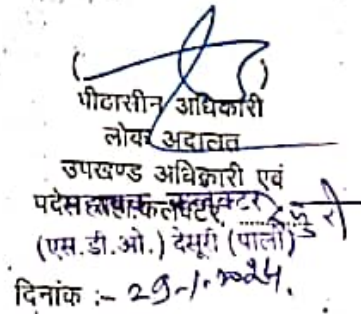 ( )
पीठासीन अधिकारी
लोक अदालत
उपखण्ड अधिकारी एवं
पदेन सहायक कलेक्टर देसूरी
(एस.डी.ओ.) देसूरी (पाली)
दिनांक :- 29-1-2024.